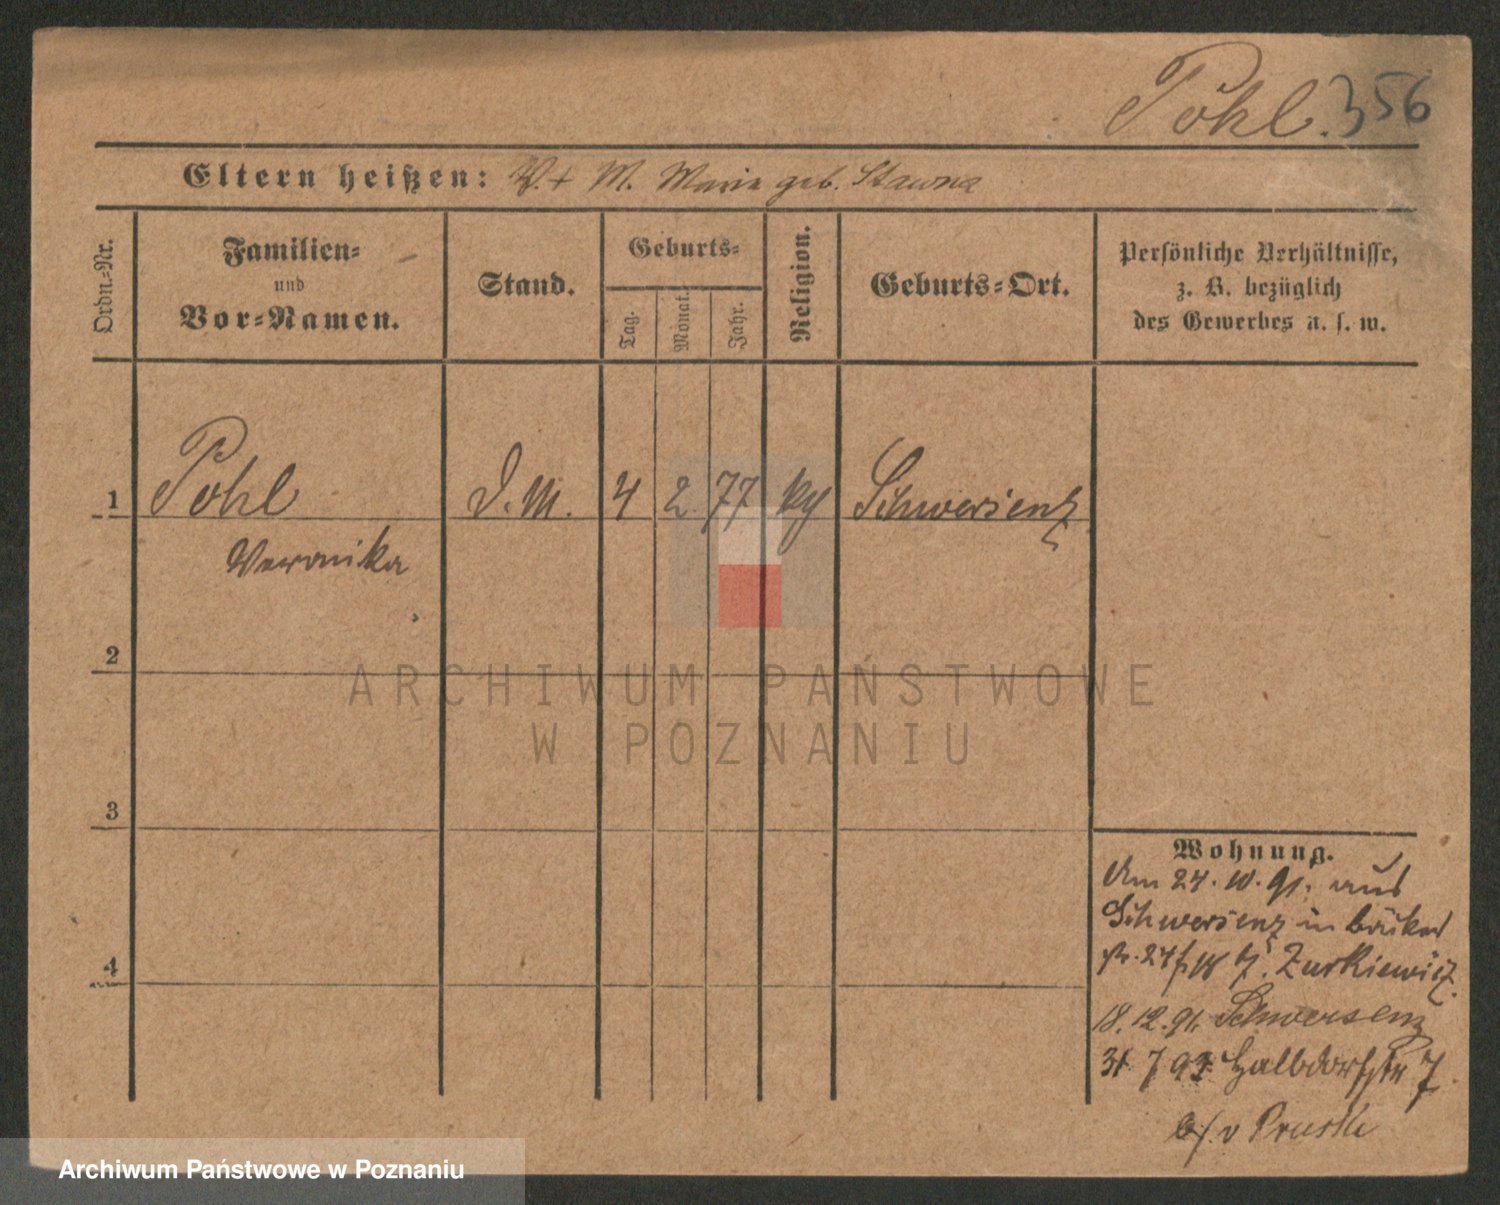 Pohl. 356
Eltern heißen: V. + M. Marie geb. Stawna
Ordn.-Nr.
Familien-
und
Vor-Namen.
Stand.
Geburts-
Tag.
Monat.
Jahr.
Religion.
Geburts-Ort.
Persönliche Verhältnisse,
z. B. bezüglich
des Gewerbes u. s. w.
1 Pohl D. M. 4 2 77 Schwersenz
Veronika
2
3
4
Wohnung.
Am 24. 10. 91. aus
Schwersenz in Bäcker
str. 24 Zurkiewicz.
18. 12. 91. Schwersenz
31 7 93 Halbdorfstr 7
b/ v Pruski
ARCHIWUM PAŃSTWOWE
W POZNANIU
Archiwum Państwowe w Poznaniu